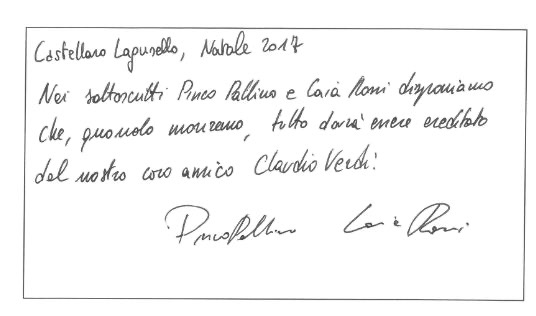 Castellaro Lagusello, Natale 2017
Noi sottoscritti Pinco Pallino e Caia Rossi disponiamo
che, quando moriremo, tutto dovrà essere ereditato
dal nostro caro amico Claudio Verdi!
Pinco Pallino Caia Rossi